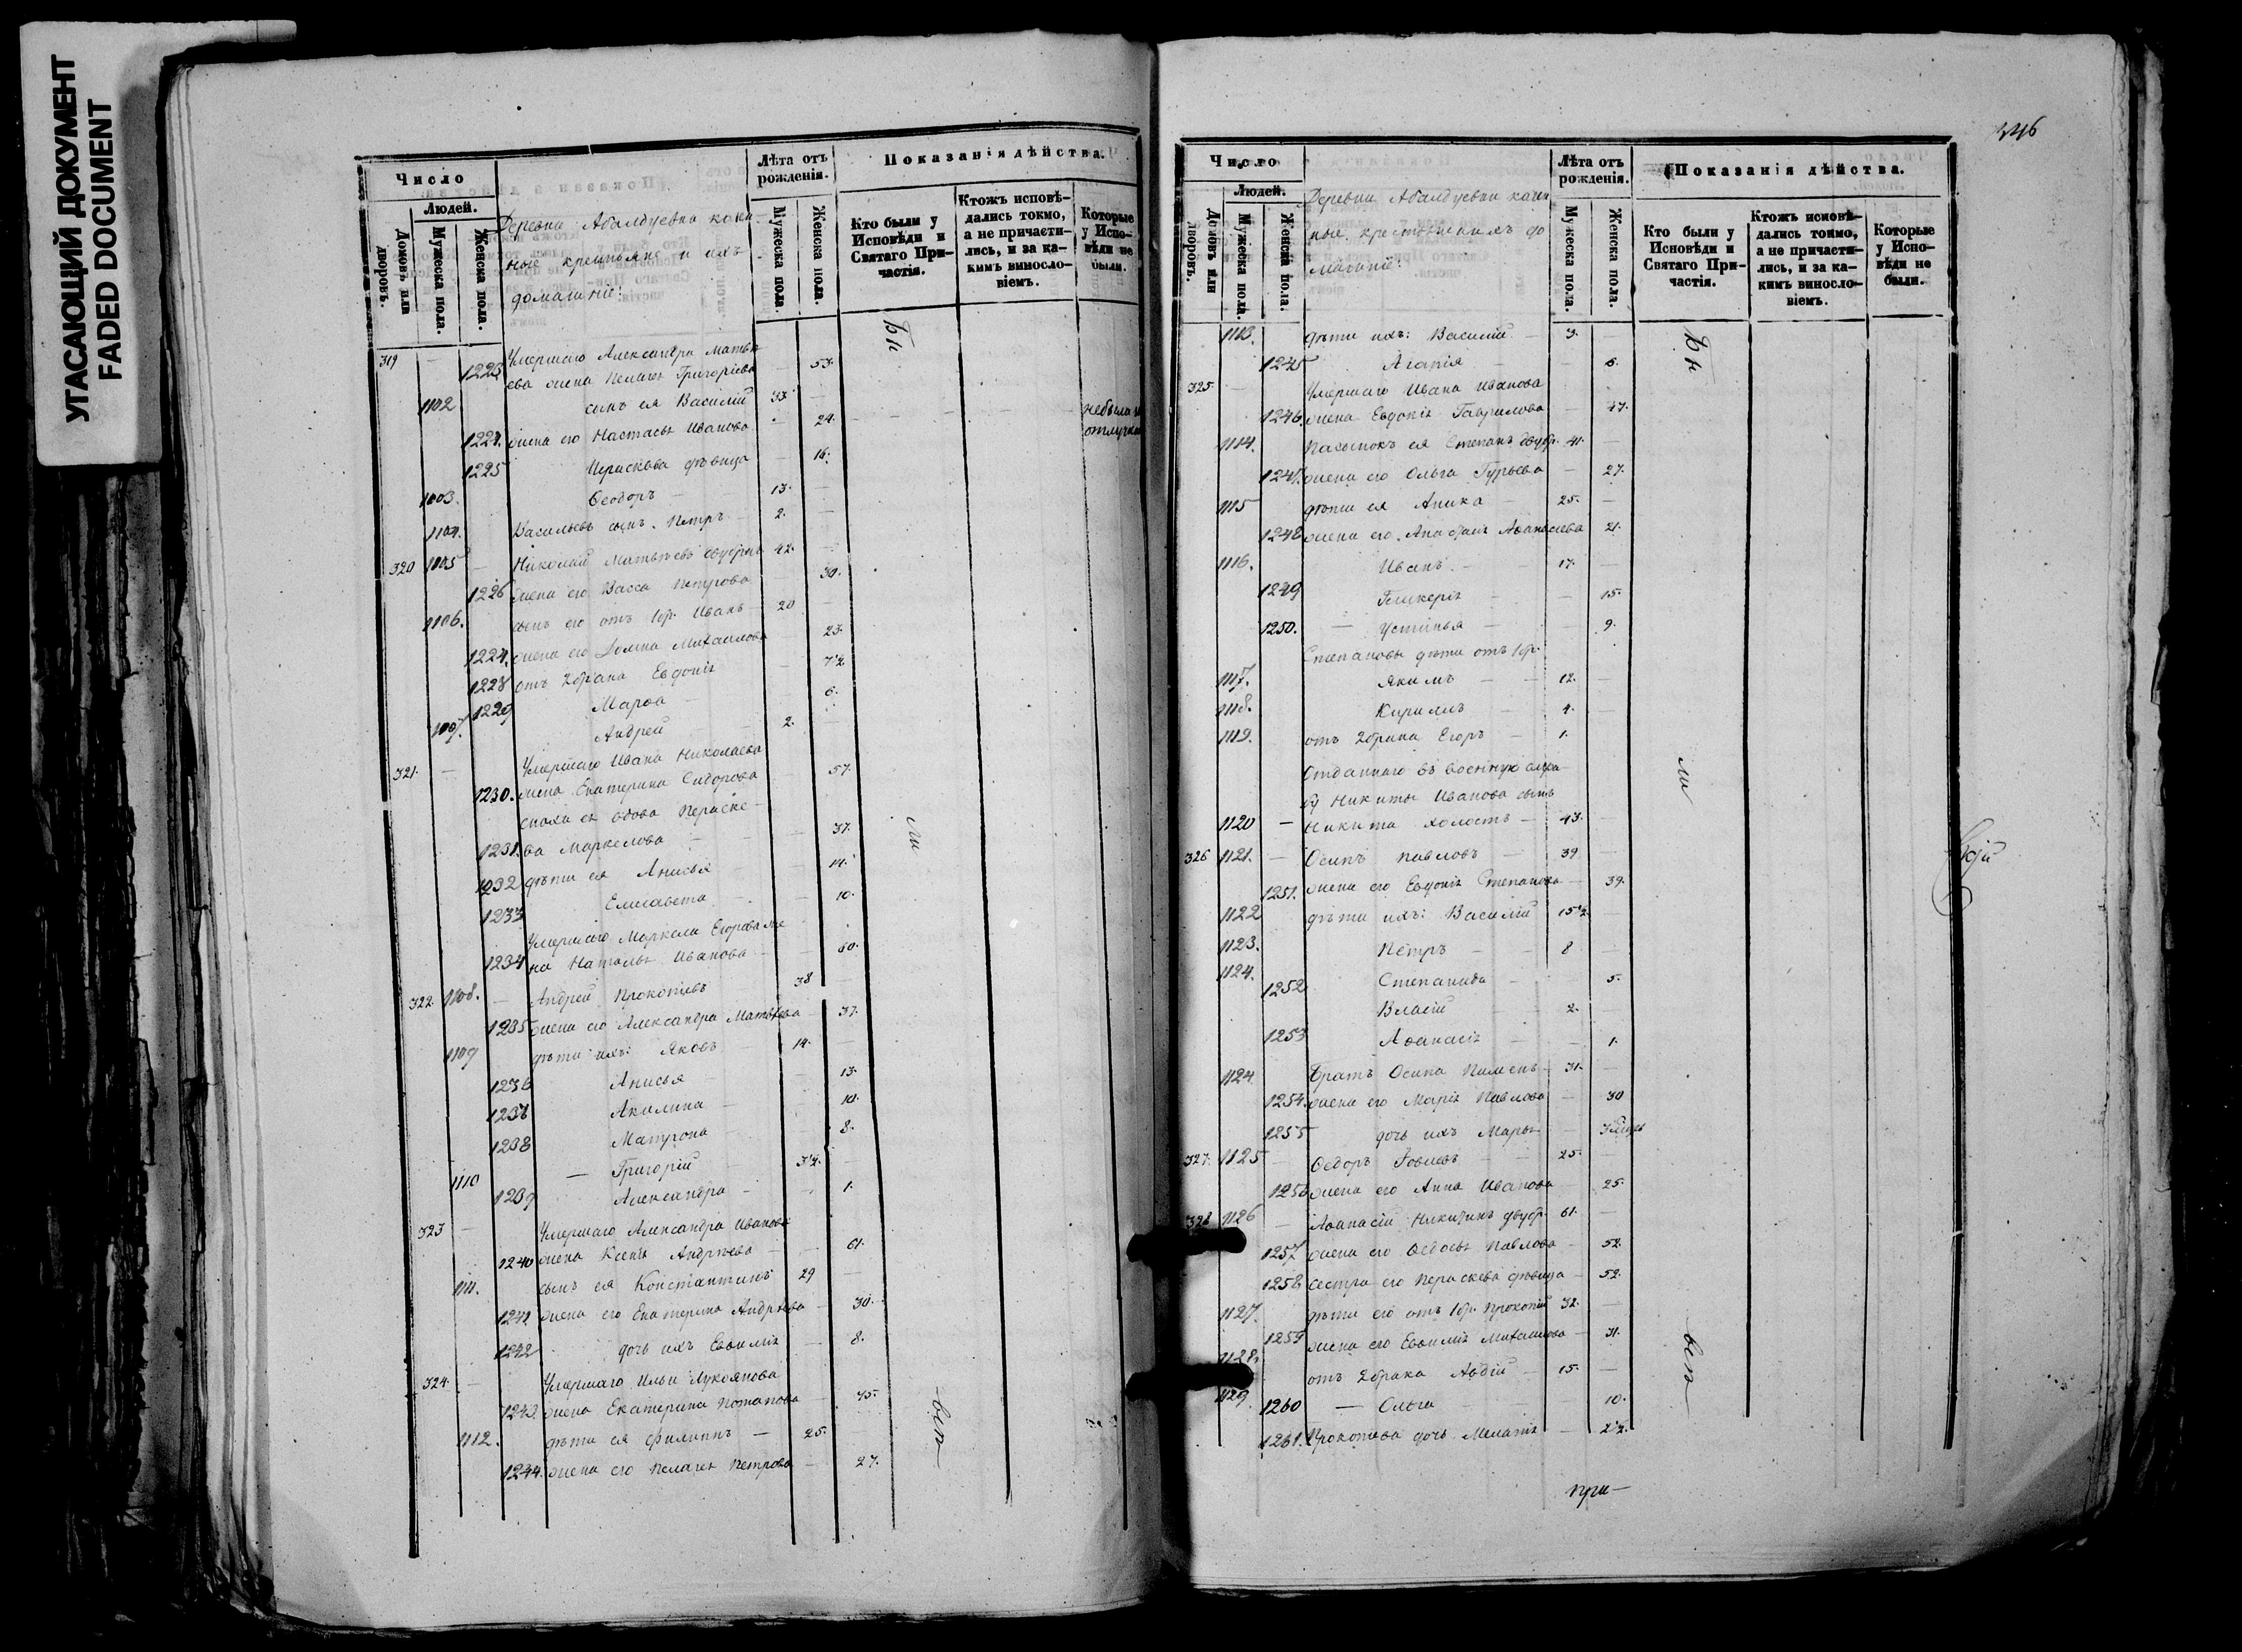 УГАСАЮЩИЙ ДОКУМЕНТ
FADED DOCUMENT
Число
Людей.
Домовъ или дворовъ.
Мужеска пола.
Женска пола.
Деревни Абалдуевки казен-
ные крестьяне и ихъ
домашніе:
Лѣта отъ рожденія.
Мужеска пола.
Женска пола.
Показанія дѣйства.
Кто были у Исповѣди и Святаго При-частія.
Ктожъ исповѣ-дались токмо, а не причасти-лись, и за ка-кимъ винослo-віемъ.
Которые у Испо-вѣди не были.
319 — Умершаго Александра Матвѣ-
1223 ева жена Пелагея Григоріева — 53.
1102 сынъ ея Василій 33 —
1224. жена его Настасья Иванова — 24. — — — не была въ отлучкѣ
1225 Пераскева дѣвица — 16.
1103. Ѳеодоръ — 13. —
1104. Васильевъ сынъ Петръ — 2. —
320 1105 — Николай Матвѣевъ двубрач 42. —
1226 жена его Васса Петрова — 30.
1106. сынъ его отъ 1бр. Иванъ — 20 —
1227. жена его Домна Михаилова — 23.
1228 отъ 2брака Евдокія — 7½
1229 Марѳа — 6.
1107. Андрей — 2. —
321. — Умершаго Ивана Николаева
1230. жена Екатерина Сидорова — 57.
сноха ея вдова Пераске-
1231. ва Маркелова — — 37.
1232 дѣти ея Анисья — 14.
1233 Елисавета — 10.
Умершаго Маркела Егорова же-
1234 на Наталья Иванова — 60.
322. 1108. — Андрей Прокопіевъ 38 —
1235 жена его Александра Матвѣева — 37.
1109 дѣти ихъ: Яковъ — 14. —
1236 Анисья — 13.
1237 Акилина — 10.
1238 Матрона — 8.
1110 — Григорій — 3½. —
1239 Александра — 1.
323 — Умершаго Александра Иванова
1240 жена Ксенія Андрѣева — 61.
1111. сынъ ея Константинъ 29 —
1241 жена его Екатерина Андрѣева — 30.
1242 дочь ихъ Евѳимія — 8.
324. — Умершаго Ильи Лукоянова
1243. жена Екатерина Потапова — 45.
1112. дѣти ея Филиппъ — 25. —
1244. жена его Пелагея Петрова — 27.
Бы
ли
вси
Число
Людей.
Домовъ или дворовъ.
Мужеска пола.
Женска пола.
Деревни Абалдуевки казен
ные крестьяне и ихъ до
машніе:
Лѣта отъ рожденія.
Мужеска пола.
Женска пола.
Показанія дѣйства.
Кто были у Исповѣди и Святаго При-частія.
Ктожъ исповѣ-дались токмо, а не причасти-лись, и за ка-кимъ винослo-віемъ.
Которые у Испо-вѣди не были.
1113. дѣти ихъ: Василій — 3. —
1245 Агапія — 6.
325. — Умершаго Ивана Иванова
1246. жена Евдокія Гаврилова — 47.
1114. Пасынокъ ея Степанъ двубр. 41. —
1247. жена его Ольга Гурьева — 27.
1115 дѣти ея Аника — 25. —
1248 жена его Аѳанасіева 21.
1116. Иванъ — 17. —
1249 Гликерія — 15.
1250. — Устинья — 9.
Степановы дѣти отъ 1бр.
1117. Якимъ — 12. —
1118. Кирилъ — 4. —
1119. отъ 2брака Егоръ — 1.
Отданнаго въ военную служ-
бу Никиты Иванова сынъ
1120 — Никита холостъ — 43. —
326 1121. — Осипъ Павловъ — 39 —
1251. жена его Евдокія Степанова — 39.
1122 дѣти ихъ: Василій 15½ —
1123. Петръ — 8 —
1124. 1252 Степанида — 5.
Власій — 2. —
1253 Аѳанасія — 1.
1124. Братъ Осипа Пименъ — 31. —
1254. жена его Марія Павлова — 30
1255 дочь ихъ Марья —
327. 1125 — Ѳедоръ — 25. —
1256 жена его Анна Иванова — 25.
328 1126 — Аѳанасій Никитинъ двубр. 61. —
1257 жена его Ѳедосья Павлова — 52.
1258 сестра его Пераскева дѣвица — 52.
1127. дѣти его отъ 1бр. Прокопій 32. —
1259 жена его Евѳимія Михаилова — 31.
1128. отъ 2брака Авдій — 15. —
1129 1260 — Ольга — 10.
1261. Прокопіева дочь Мелатія — 2½.
Бы
ли
вси
при—